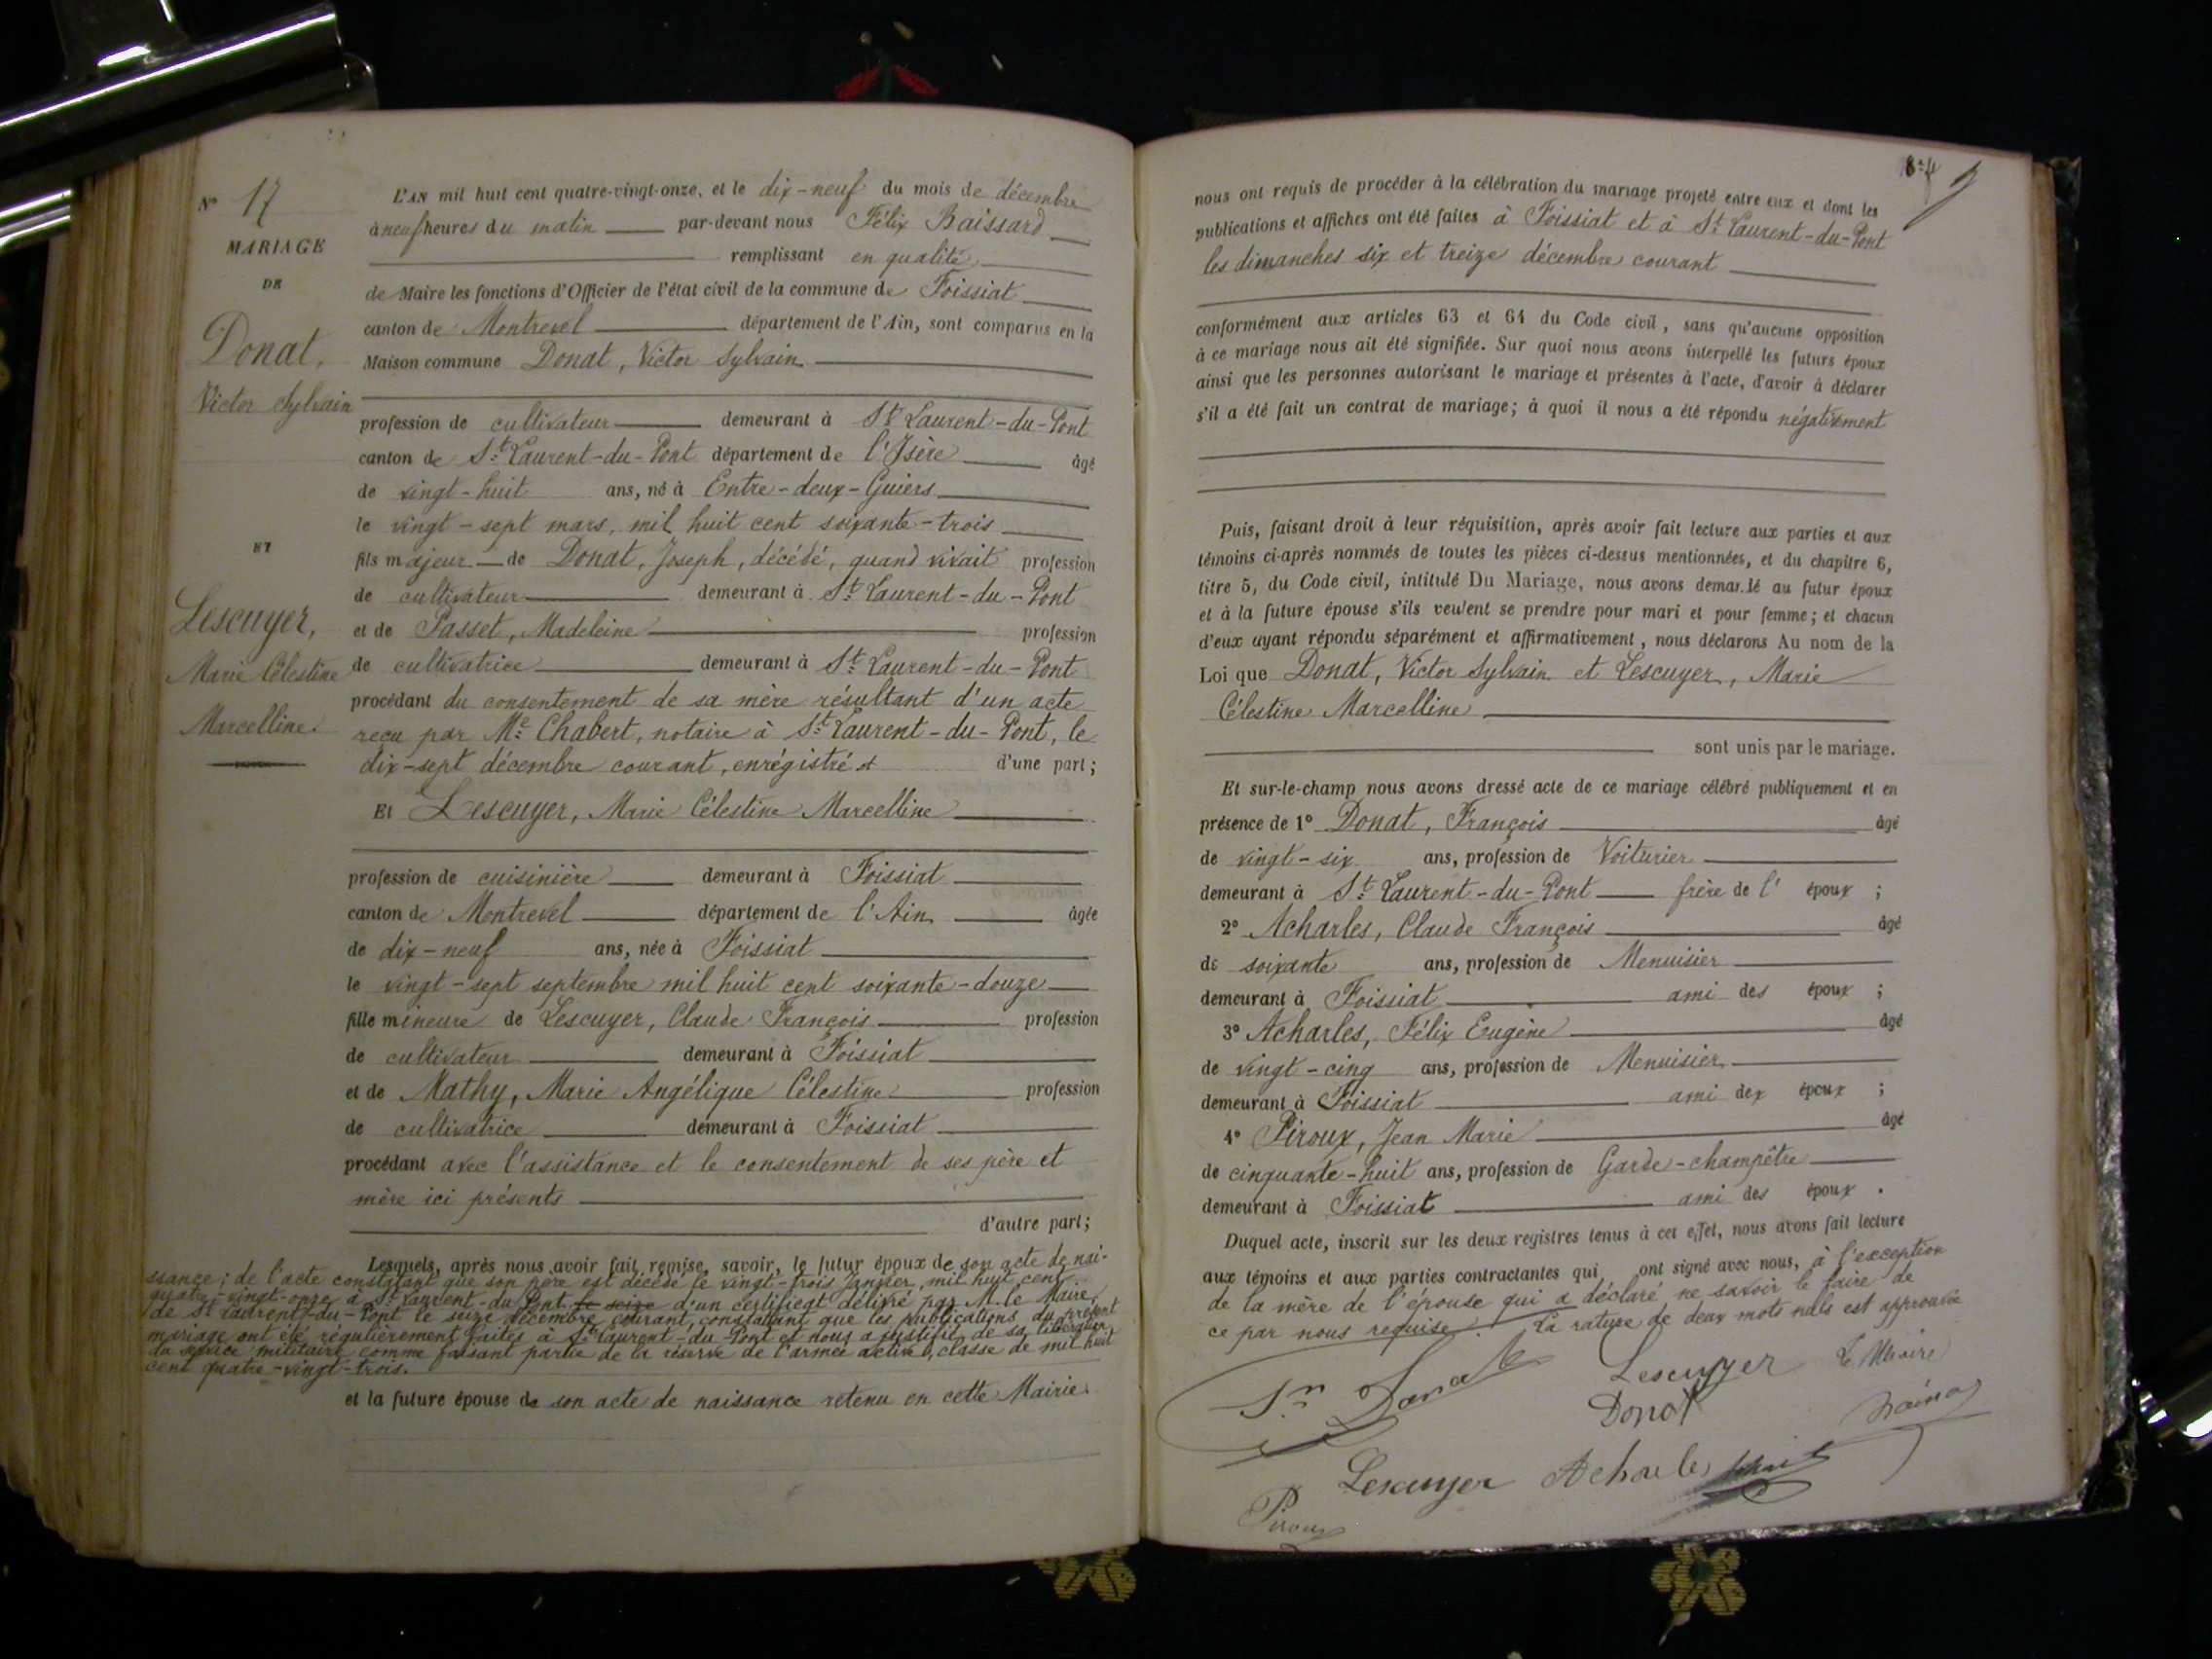 N° 17
MARIAGE
DE
Donat,
Victor Sylvain
ET
Lescuyer,
Marie Célestine
Marcelline
L'AN mil huit cent quatre-vingt-onze, et le dix-neuf du mois de décembre
à neuf heures du matin par-devant nous Félix Baissard
remplissant en qualité
de Maire les fonctions d'Officier de l'état civil de la commune de Foissiat
canton de Montrevel département de l'Ain, sont comparus en la
Maison commune Donat, Victor Sylvain
profession de cultivateur demeurant à St Laurent-du-Pont
canton de St Laurent-du-Pont département de l'Isère âgé
de vingt-huit ans, né à Entre-deux-Guiers
le vingt-sept mars, mil huit cent soixante-trois
fils majeur de Donat, Joseph, décédé, quand vivait profession
de cultivateur demeurant à St Laurent-du-Pont
et de Passet, Madeleine profession
de cultivatrice demeurant à St Laurent-du-Pont
procédant du consentement de sa mère résultant d'un acte
reçu par Me Chabert, notaire à St Laurent-du-Pont, le
dix-sept décembre courant, enrégistré et d'une part;
Et Lescuyer, Marie Célestine Marcelline
profession de cuisinière demeurant à Foissiat
canton de Montrevel département de l'Ain âgée
de dix-neuf ans, née à Foissiat
le vingt-sept septembre mil huit cent soixante-douze
fille mineure de Lescuyer, Claude François profession
de cultivateur demeurant à Foissiat
et de Mathy, Marie Angélique Célestine profession
de cultivatrice demeurant à Foissiat
procédant avec l'assistance et le consentement de ses père et
mère ici présents
d'autre part;
Lesquels, après nous avoir fait remise, savoir, le futur époux de son acte de nai-
ssance; de l'acte constatant que son père est décédé le vingt-trois janvier mil huit cent
quatre-vingt-onze à St Laurent-du-Pont le seize d'un certificat délivré par M. le Maire
de St Laurent-du-Pont le seize décembre courant, constatant que les publications du présent
mariage ont été régulièrement faites à St Laurent-du-Pont et nous a justifié de sa libération
du service militaire comme faisant partie de la réserve de l'armée active, classe de mil huit
cent quatre-vingt-trois.
et la future épouse de son acte de naissance retenu en cette Mairie.
nous ont requis de procéder à la célébration du mariage projeté entre eux et dont les
publications et affiches ont été faites à Foissiat et à St Laurent-du-Pont
les dimanches six et treize décembre courant
conformément aux articles 63 et 64 du Code civil, sans qu'aucune opposition
à ce mariage nous ait été signifiée. Sur quoi nous avons interpellé les futurs époux
ainsi que les personnes autorisant le mariage et présentes à l'acte, d'avoir à déclarer
s'il a été fait un contrat de mariage; à quoi il nous a été répondu négativement
Puis, faisant droit à leur réquisition, après avoir fait lecture aux parties et aux
témoins ci-après nommés de toutes les pièces ci-dessus mentionnées, et du chapitre 6,
titre 5, du Code civil, intitulé Du Mariage, nous avons demandé au futur époux
et à la future épouse s'ils veulent se prendre pour mari et pour femme; et chacun
d'eux ayant répondu séparément et affirmativement, nous déclarons Au nom de la
Loi que Donat, Victor Sylvain et Lescuyer, Marie
Célestine Marcelline
sont unis par le mariage.
Et sur-le-champ nous avons dressé acte de ce mariage célébré publiquement et en
présence de 1° Donat, François âgé
de vingt-six ans, profession de Voiturier
demeurant à St Laurent-du-Pont frère de l' époux ;
2° Acharles, Claude François âgé
de soixante ans, profession de Menuisier
demeurant à Foissiat ami des époux ;
3° Acharles, Félix Eugène âgé
de vingt-cinq ans, profession de Menuisier
demeurant à Foissiat ami des époux ;
4° Piroux, Jean Marie âgé
de cinquante-huit ans, profession de Garde-champêtre
demeurant à Foissiat ami des époux .
Duquel acte, inscrit sur les deux registres tenus à cet effet, nous avons fait lecture
aux témoins et aux parties contractantes qui ont signé avec nous, à l'exception
de la mère de l'épouse qui a déclaré ne savoir le faire de
ce par nous requise. La rature de deux mots nuls est approuvée
Donat Lescuyer Le Maire
Donat
Lescuyer Acharles
Piroux